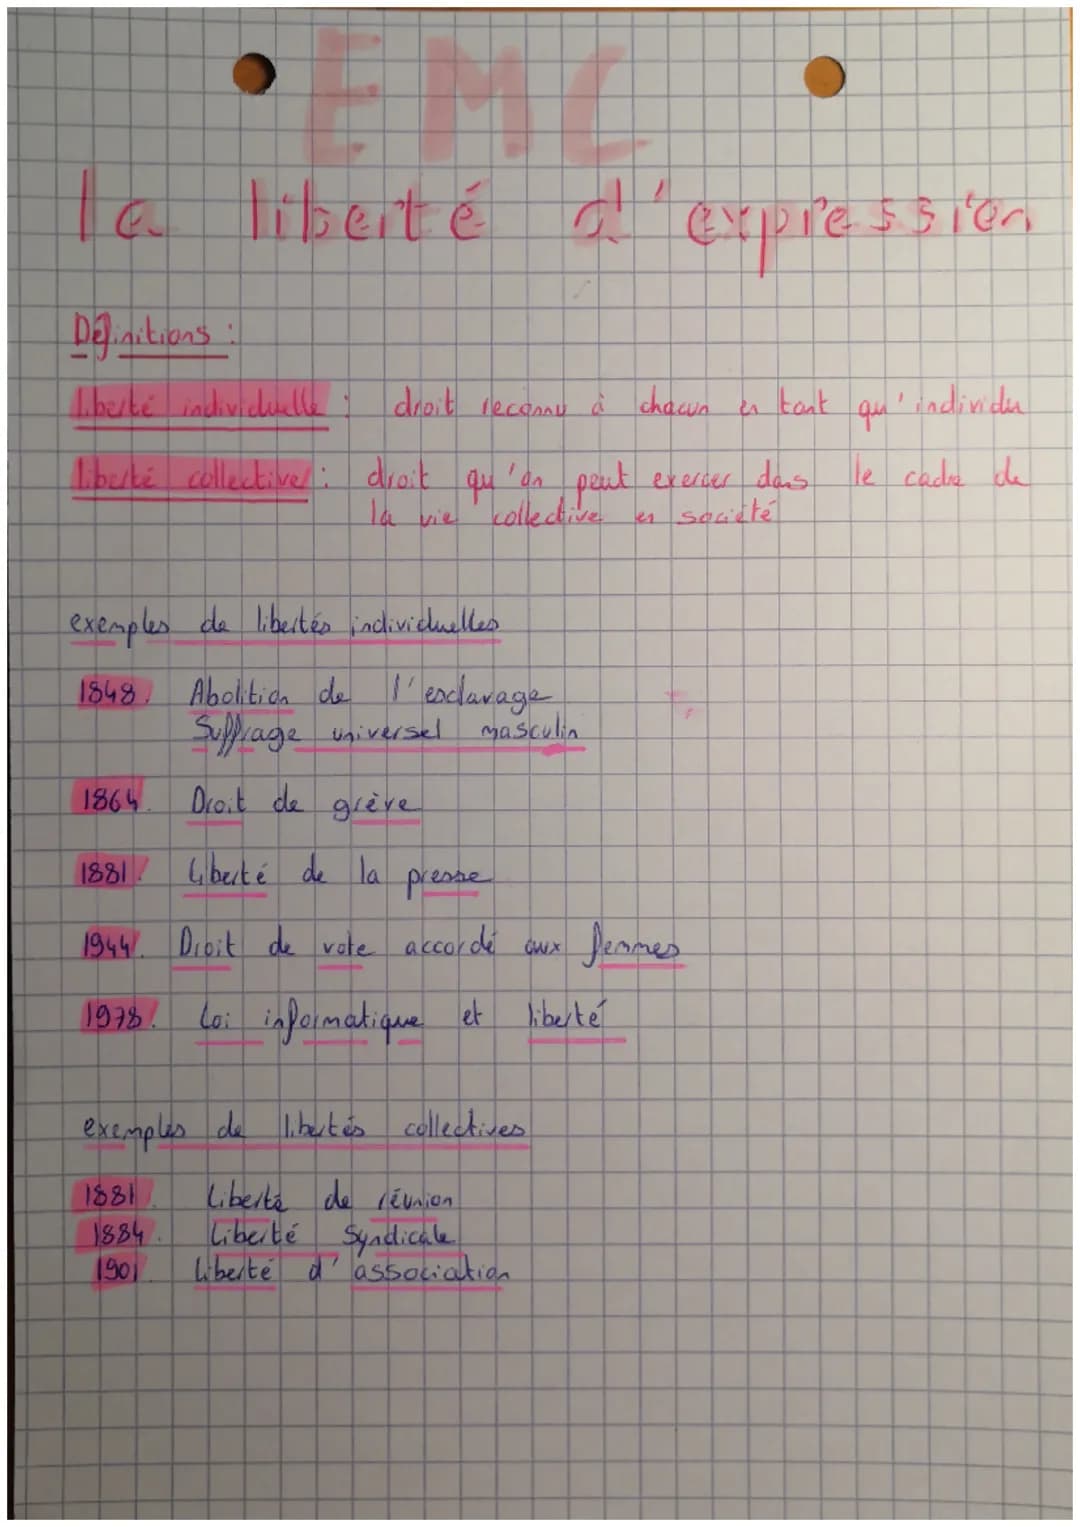 EMC
la liberté d'expression
Définitions :
liberté individuelle : droit reconnu à chacun en tant qu'individu
liberté collective : droit qu'on peut exercer dans le cadre de
la vie collective en société
exemples de libertés individuelles
1848. Abolition de l'esclavage
Suffrage universel masculin
1864. Droit de grève
1881. Liberté de la presse
1944. Droit de vote accordé aux femmes
1978. Loi informatique et liberté
exemples de libertés collectives
1881. Liberté de réunion
1884. Liberté Syndicale
1901. Liberté d'association